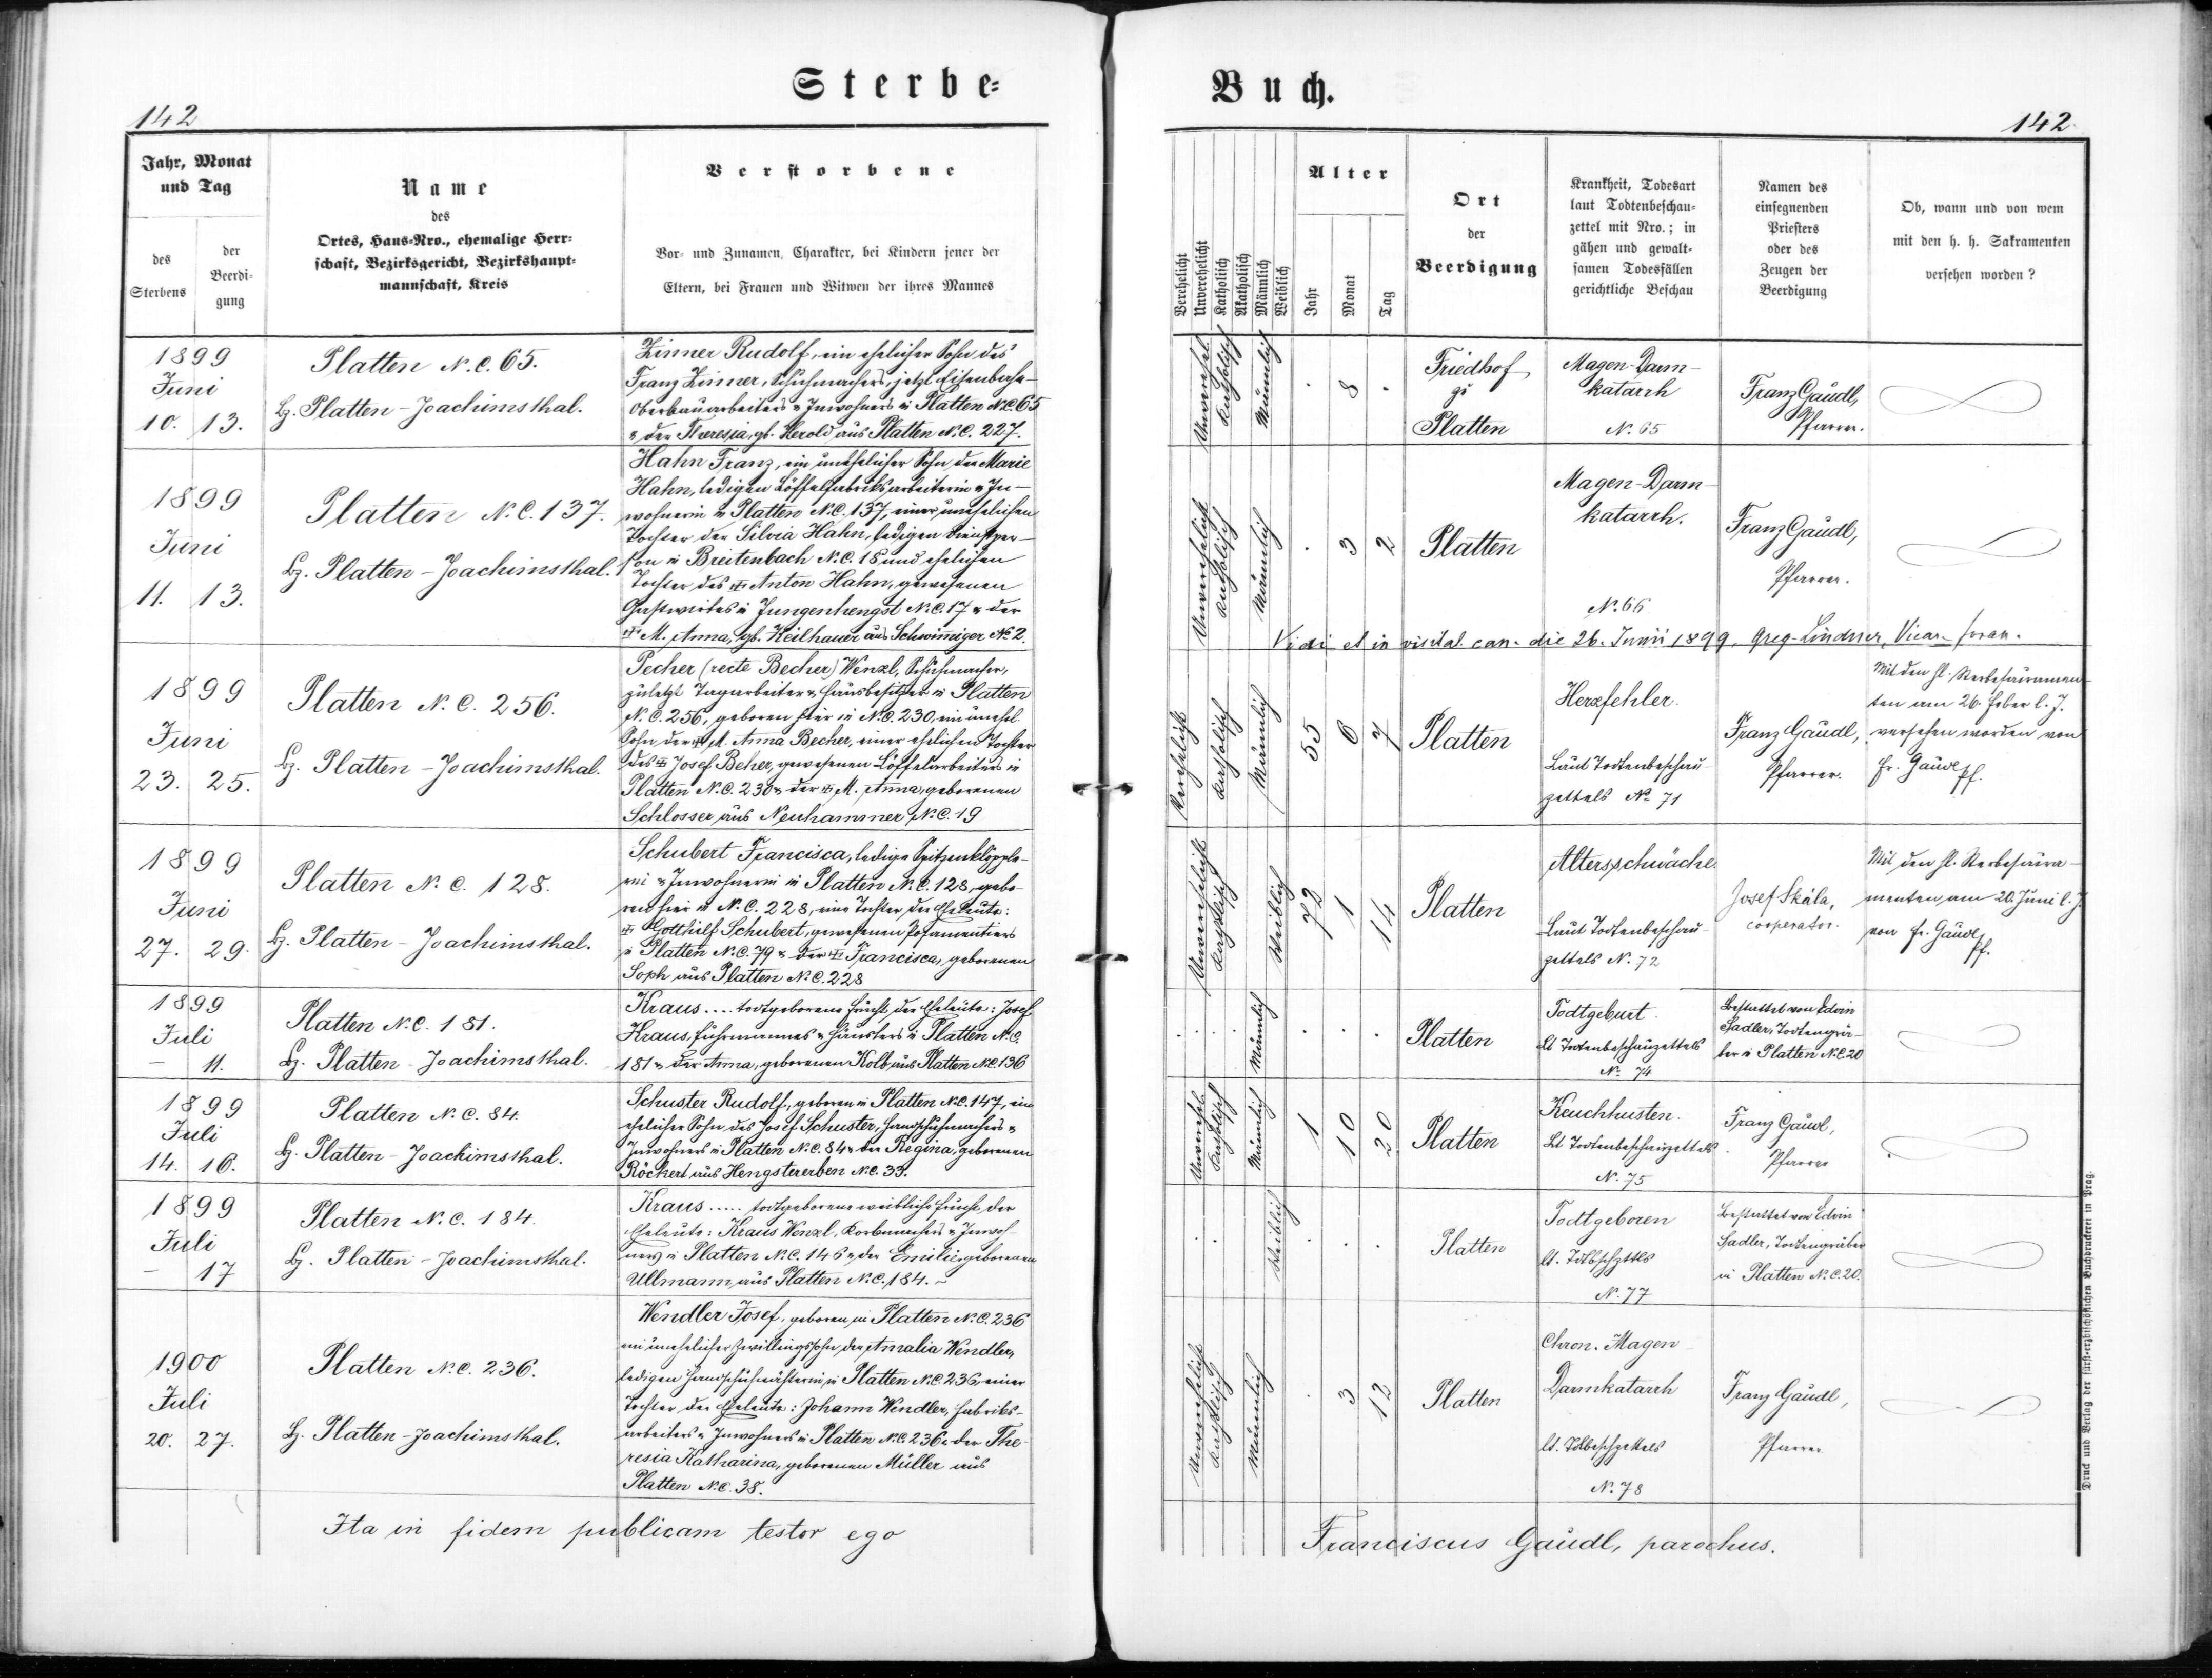 Sterbe-
Buch.
142
142
Jahr, Monat
und Tag
des
Sterbens
der
Beerdi-
gung
Name
des
Ortes, Haus-Nro., ehemalige Herr-
schaft, Bezirksgericht, Bezirkshaupt-
mannschaft, Kreis
Verstorbene
Vor- und Zunamen, Charakter, bei Kindern jener der
Eltern, bei Frauen und Witwen der ihres Mannes
Verehelicht
Unverehelicht
Katholisch
Akatholisch
Männlich
Weiblich
Alter
Jahr
Monat
Tag
Ort
der
Beerdigung
Krankheit, Todesart
laut Todtenbeschau-
zettel mit Nro.; in
gähen und gewalt-
samen Todesfällen
gerichtliche Beschau
Namen des
einsegnenden
Priesters
oder des
Zeugen der
Beerdigung
Ob, wann und von wem
mit den h. h. Sakramenten
versehen worden?
1899
Juni
10. 13.
Platten N.C. 65.
Bz. Platten-Joachimsthal.
Zinner Rudolf, ein ehelicher Sohn des
Franz Zinner, Schuhmachers, jetzt Eisenbahn-
Oberbauarbeiters u Inwohners in Platten N.C. 65
u der Theresia, gb. Herold aus Platten N.C. 227.
Unverehel.
Katholisch
Männlich
. 8 .
Friedhof
zu
Platten
Magen-Darm-
katarrh
N. 65
Franz Gaudl,
Pfarrer.
1899
Juni
11. 13.
Platten N.C. 137.
Bz. Platten-Joachimsthal.
Hahn Franz, ein unehelicher Sohn der Marie
Hahn, ledigen Löffelfabriksarbeiterin u In-
wohnerin in Platten N.C. 137, einer unehelichen
Tochter der Silvia Hahn, ledigen Dienstper-
son in Breitenbach N.C. 18 und ehelichen
Tochter des Anton Hahn, gewesenen
Gastwirtes in Jungenhengst N.C. 17 u der
M. Anna, gb. Keilhauer aus Schwimiger No 2.
Unverehelicht
Katholisch
Männlich
. 3 2
Platten
Magen-Darm-
katarrh.
N. 66
Franz Gaudl,
Pfarrer.
Vidi et in visitat. can. die 26. Junii 1899. Greg. Lindner, Vicar. foran.
1899
Juni
23. 25.
Platten N.C. 256.
Bz. Platten-Joachimsthal.
Pecher (recte Becher) Wenzl, Schuhmacher,
zuletzt Tagarbeiter u Hausbesitzer in Platten
N.C. 256, geboren hier in N.C. 230, ein unehel.
Sohn der M. Anna Becher, einer ehelichen Tochter
des Josef Beher, gewesenen Löffelarbeiters in
Platten N.C. 230 u der M. Anna, geborenen
Schlosser aus Neuhammer N.C. 19
Verehelicht
Katholisch
Männlich
55 6 7
Platten
Herzfehler.
Laut Todtenbeschau-
zettels No 71
Franz Gaudl,
Pfarrer.
Mit den hl. Sterbesakramen-
ten am 26. Feber l. J.
versehen worden von
Fr. Gaudl Pf.
1899
Juni
27. 29.
Platten N.C. 128.
Bz. Platten-Joachimsthal.
Schubert Francisca, ledige Spitzenklöpple-
rin u Inwohnerin in Platten N.C. 128, gebo-
ren hier in N.C. 228, eine Tochter der Eheleute:
Gotthilf Schubert, gewesenen Posamentiers
in Platten N.C. 79 u der Francisca, geborenen
Soph aus Platten N.C. 228
Unverehelicht
Katholisch
Weiblich
72 1 14
Platten
Altersschwäche.
Laut Todtenbeschau-
zettels N. 72
Josef Skála,
cooperator.
Mit den hl. Sterbesakra-
menten am 20. Juni l. J.
von Fr. Gaudl
Pf.
1899
Juli
— 11.
Platten N.C. 181.
Bz. Platten-Joachimsthal.
Kraus .... todtgeborene Frucht der Eheleute: Josef
Kraus, Fuhrmannes u Häuslers in Platten N.C.
181 u der Anna, geborenen Kolb aus Platten N.C. 136
Männlich
Platten
Todtgeburt.
Lt Todtenbeschauzettels
No 74
Bestattet von Edvin
Sadler, Todtengrä-
ber in Platten N.C. 20
1899
Juli
14. 16.
Platten N.C. 84.
Bz. Platten-Joachimsthal.
Schuster Rudolf, geboren in Platten N.C. 147, ein
ehelicher Sohn des Josef Schuster, Handschuhmachers u
Inwohners in Platten N.C. 84 u der Regina, geborenen
Röckert aus Hengstererben N.C. 33.
Unverehel.
Katholisch
Männlich
1 10 20
Platten
Keuchhusten.
Lt. Todtenbeschauzettels
N. 75
Franz Gaudl,
Pfarrer
1899
Juli
— 17
Platten N.C. 184.
Bz. Platten-Joachimsthal.
Kraus ..... todtgeborene weibliche Frucht der
Eheleute: Kraus Wenzl, Korbmachers u Inwoh-
ners in Platten N.C. 146 u der Emilie, geborenen
Ullmann aus Platten N.C. 184.
Weiblich
Platten
Todtgeboren
N. 77
Bestattet von Edvin
Sadler, Todtengräber
in Platten N.C. 20.
1900
Juli
20. 27.
Platten N.C. 236.
Bz. Platten-Joachimsthal.
Wendler Josef, geboren in Platten N.C. 236
ein unehelicher Zwillingssohn der Amalia Wendler,
ledigen Handschuhnähterin in Platten N.C. 236, einer
Tochter der Eheleute: Johann Wendler, Fabriks-
arbeiters u Inwohners in Platten N.C. 236 u der The-
resia Katharina, geborenen Müller aus
Platten N.C. 38.
Unverehelicht
Katholisch
Männlich
. 3 12
Platten
Chron. Magen-
Darmkatarrh
N. 78
Franz Gaudl,
Pfarrer
Ita in fidem publicam testor ego
Franciscus Gaudl, parochus.
Druck und Verlag der fürst-erzbischöflichen Buchdruckerei in Prag.